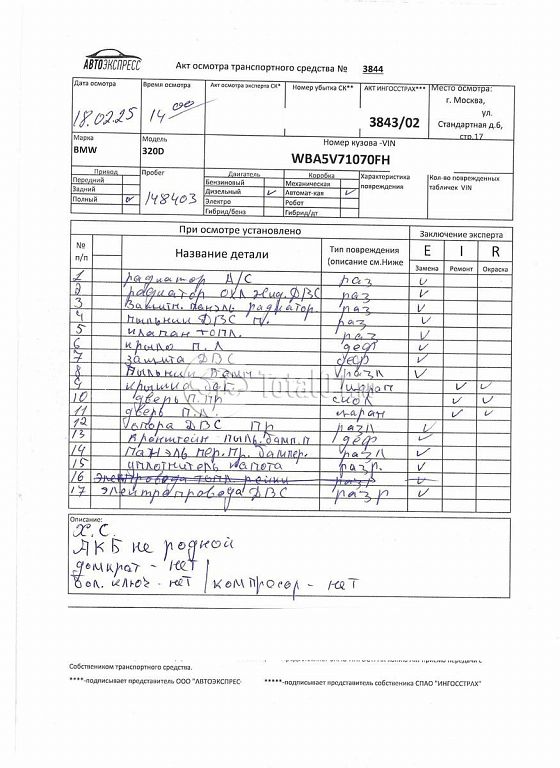 АВТОЭКСПРЕСС
Акт осмотра транспортного средства № 3844
Дата осмотра
18.02.25
Время осмотра
14 00
Акт осмотра эксперта СК*
Номер убытка СК**
АКТ ИНГОССТРАХ***
3843/02
Место осмотра:
г. Москва,
ул.
Стандартная д.6,
стр.17
Марка
BMW
Модель
320D
Номер кузова -VIN
WBA5V71070FH
Привод
Передний
Задний
Полный ✓
Пробег
148403
Двигатель
Бензиновый
Дизельный ✓
Электро
Гибрид/бенз
Коробка
Механическая
Автомат-кая ✓
Робот
Гибрид/дт
Характеристика
повреждения
Кол-во поврежденных
табличек VIN
При осмотре установлено
Заключение эксперта
№ п/п
Название детали
Тип повреждения (описание см.Ниже
E Замена
I Ремонт
R Окраска
1 радиатор А/С раз ✓
2 радиатор охл жид. ДВС раз ✓
3 Защитн. панэль радиатор. раз ✓
4 пыльник ДВС раз ✓
5 клапан топл. раз ✓
6 крыло п. Л деф ✓
7 защита ДВС деф ✓
8 Пыльник разл ✓
9 крышка царап ✓ ✓
10 дверь п.пр скол ✓ ✓
11 дверь п.л. царап ✓ ✓
12 опора ДВС пр разл ✓
13 кронштейн пыль. бамп. п деф ✓
14 панэль пер. пр. бампер. разл ✓
15 уплотнитель капота разр. ✓
16 электровода топл. рейки разр ✓
17 электропровода ДВС разр ✓
Описание:
Х.С.
АКБ не родной
домкрат - нет
бал. ключ - нет | компросор - нет
Собствеником транспортного средства.
****-подписывает представитель ООО "АВТОЭКСПРЕС
*****-подписывает представитель собственика СПАО "ИНГОССТРАХ"